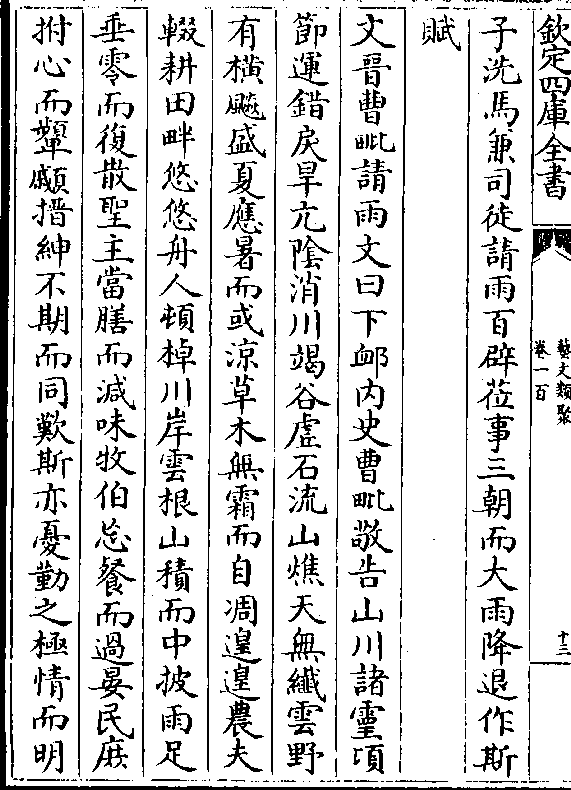 欽定四庫全書
藝文類聚
卷一百
十三
子洗馬兼司徒請雨百辟莅事三朝而大雨降退作斯
賦
文晉曹毗請雨文曰下邳内史曹毗敬告山川諸靈頃
節運錯戾旱亢陰消川竭谷虛石流山燋天無纖雲野
有橫飈盛夏應暑而或涼草木無霜而自凋遑遑農夫
輟耕田畔悠悠舟人頓棹川岸雲根山積而中披雨足
垂零而復散聖主當膳而減味牧伯忘餐而過晏民庶
拊心而顰蹙搢紳不期而同歎斯亦憂勤之極情而明